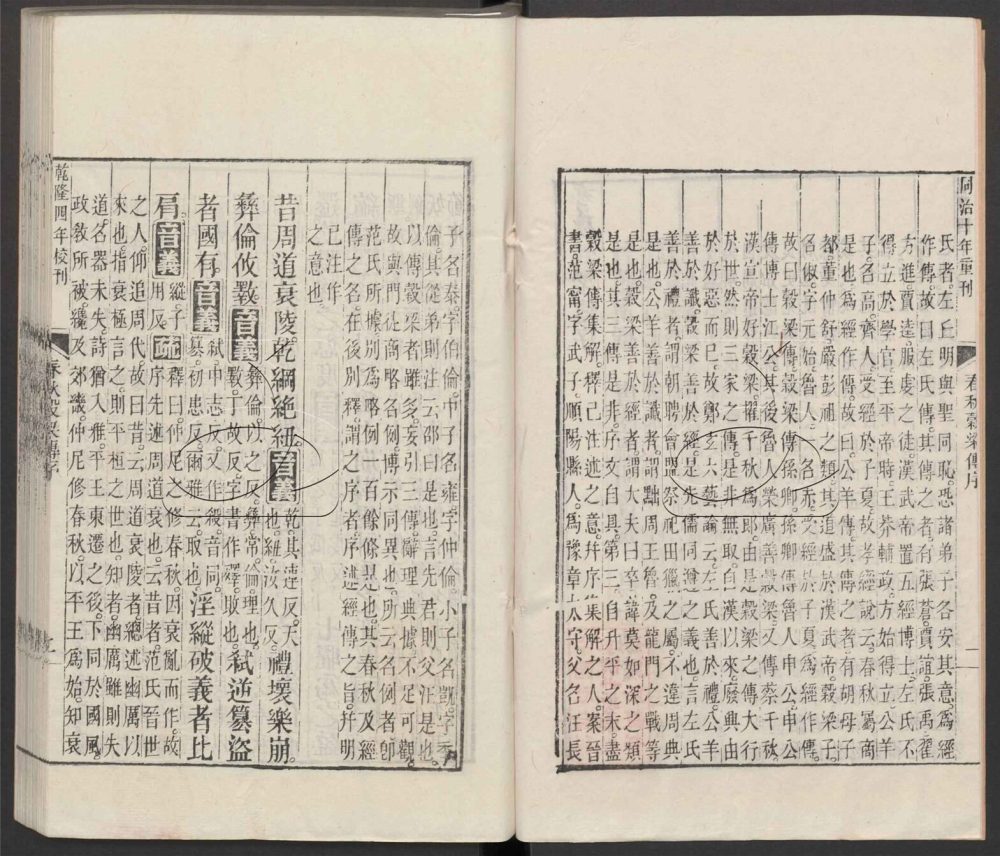 同治十年重刊
春秋穀梁傳序
二
氏者。左丘明與聖同恥。恐諸弟子各安其意。爲經
作傳。故曰左氏傳。其傳之者。有張蒼。賈誼。張禹。翟
方進。賈逵。服虔之徒。漢武帝置五經博士。左氏不
得立於學官。至平帝時。王莽輔政。方始得立。公羊
子名高。齊人。受經於子夏。故孝經說云。春秋屬商
是也。爲經作傳。故曰公羊傳。其傳之者有胡母子
都。董仲舒。嚴彭祖之類。其道盛於漢武帝。穀梁子
名俶。字元始。魯人。一名赤。受經於子夏。爲經作傳。
故曰穀梁傳。傳孫卿。孫卿傳魯人申公。申公
傳博士江公。其後魯人榮廣善穀梁。又傳蔡千秋。
漢宣帝好穀梁。擢千秋爲郎。由是穀梁之傳大行
於世。然則三家之傳。是非無取。自漢以來。廢興由
於好惡而已。故鄭玄六藝論云。左氏善於禮。公羊
善於讖。穀梁善於經。是先儒同遵之義也。言左氏
善於禮者。謂朝聘會盟祭祀田獵之屬。不違周典
是也。公羊善於讖者。謂黜周王魯。及龍門之戰等
是也。穀梁善於經者。謂大夫曰卒。諱莫如深之類
是也。其三傳是非。序文自具。第三。自升平之末。盡
穀梁傳集解。釋己注述之意。幷序集解之人。案晉
書。范甯。字武子。順陽縣人。爲豫章太守。父名汪。長
子名泰。字伯倫。中子名雍。字仲倫。小子名凱。字季
倫。其從弟則注云邵曰是也。言先君則父汪是也。
以傳穀梁者雖多。妄引三傳。辭理典據不足可觀。
故與門徒商略名例。博示同異也。所云名例者。卽
范氏所據別爲略例一百餘條是也。其春秋及經
傳之名。在後別釋。謂之序者。序述經傳之旨。幷明
已注作
之意也。
昔周道衰陵。乾綱絕紐。音義乾。其連反。天也。紐。女久反。禮壞樂崩。
彝倫攸斁。音義彝倫。以之反。彝。常。倫。理也。斁。丁故反。字書作殬。敗也。弒逆篡盜
者國有。音義弒。申志反。又作殺。音同。篡。初患反。爾雅云。取也。淫縱破義者比
肩。音義縱。子用反。疏釋曰。仲尼之修春秋。因衰亂而作。故
序先述周道衰也。云昔者。范氏晉世
之人。仰追周代。故曰昔。云周道衰陵者。總述幽厲以
來也。指衰極言之。則平桓之世也。知者。幽厲雖則失
道。名器未失。詩猶入雅。平王東遷之後。下同於國風。
政教所被。纔及郊畿。仲尼修春秋。以平王爲始。知衰
乾隆四年校刊
春秋穀梁傳序